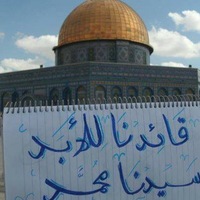 قائدنا للأبد
سيدنا محمد